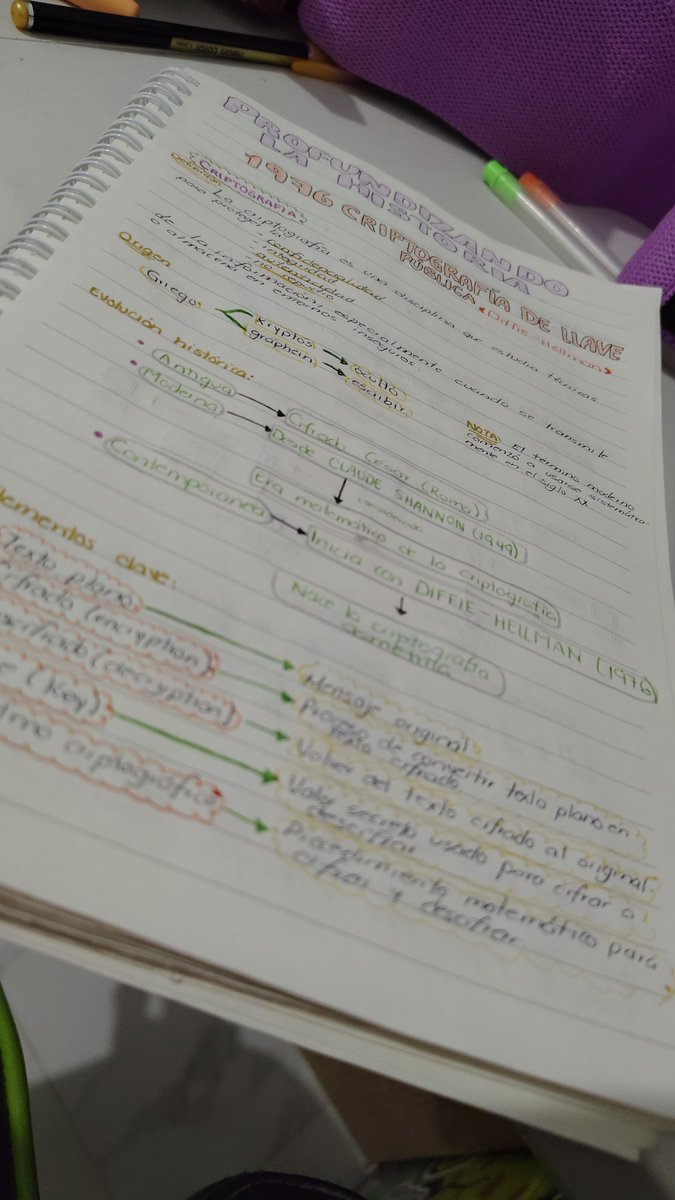 PROFUNDIZANDO
LA HISTORIA
1976 CRIPTOGRAFÍA DE LLAVE
PÚBLICA "Diffie-Hellman"
CRIPTOGRAFÍA
La criptografía es una disciplina que estudia técnicas
para proteger la:
confidencialidad
integridad
autenticidad
no repudio
de la información, especialmente cuando se transmite
o almacena en entornos inseguros
Origen
Griego: kryptos oculto
graphein escribir
NOTA: El término moderno
comenzó a usarse sistemática-
mente en el siglo XX
Evolución histórica:
Antigua Cifrado César (Roma)
Moderna Desde CLAUDE SHANNON (1949)
Era matemática de la criptografía
Contemporanea Inicia con DIFFIE-HELLMAN (1976)
Nace la criptografía
lementos clave:
Texto plano Mensaje original
ifrado (encryption) Proceso de convertir texto plano en
texto cifrado
scifrado (decryption) Volver del texto cifrado al original.
e (key) Valor secreto usado para cifrar o
descifrar
tmo criptográfico Procedimiento matemático para
cifrar y descifrar